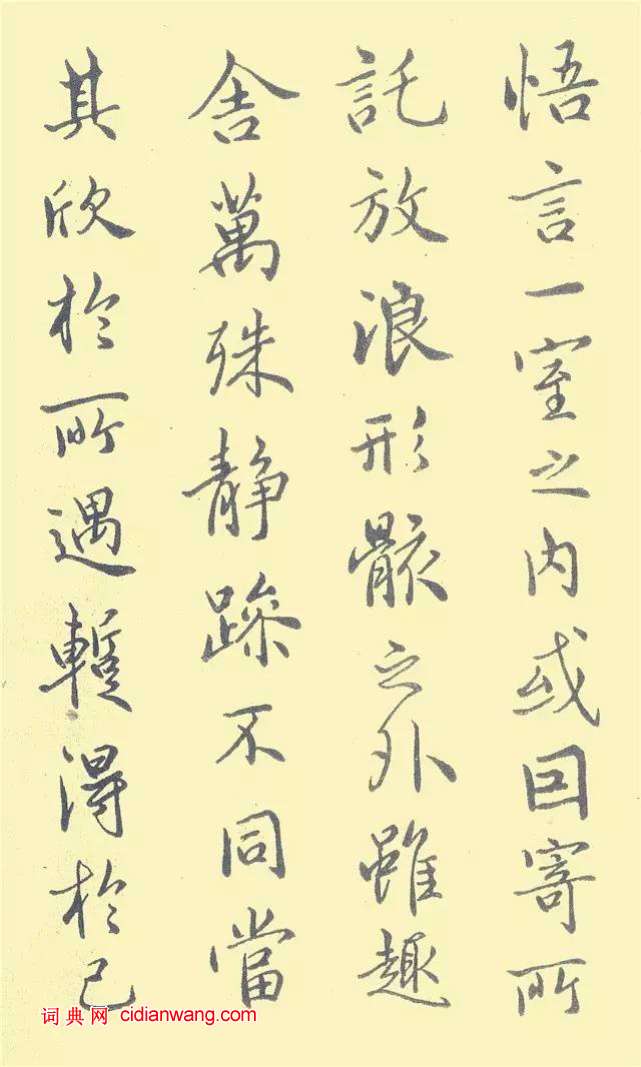 悟言一室之内或因寄所
託放浪形骸之外雖趣
舍萬殊静躁不同當
其欣於所遇暫得於己
词典网 cidianwang.com